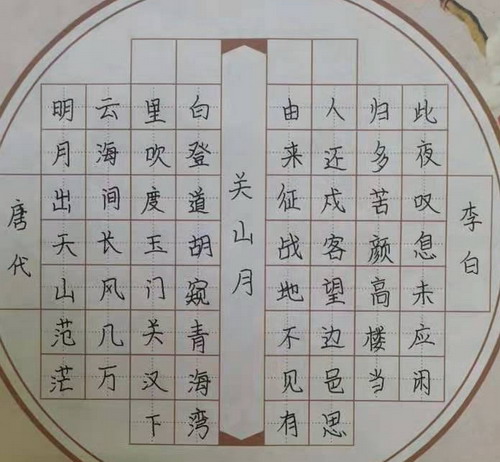 唐代
明月出天山范茫
云海间长风几万
里吹度玉门关汉下
白登道胡窥青海湾
关山月
由来征战地不见有
人还戍客望边邑思
归多苦颜高楼当
此夜叹息未应闲
李白